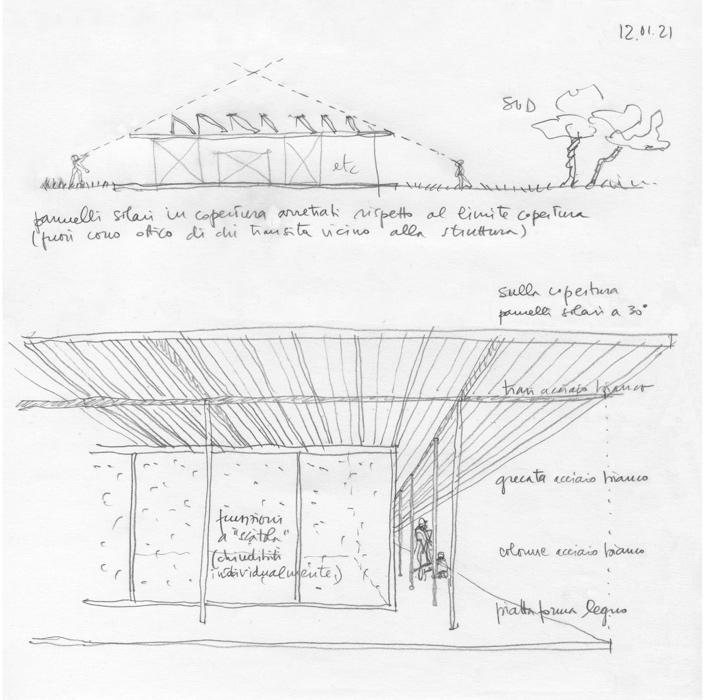 12.01.21
SUD
etc
pannelli solari in copertura arretrati rispetto al limite copertura
(fuori cono ottico di chi transita vicino alla struttura)
sulla copertura
pannelli solari a 30°
travi acciaio bianco
grecata acciaio bianco
funzioni
a "scatola"
(chiudibili
individualmente)
colonne acciaio bianco
piattaforma legno